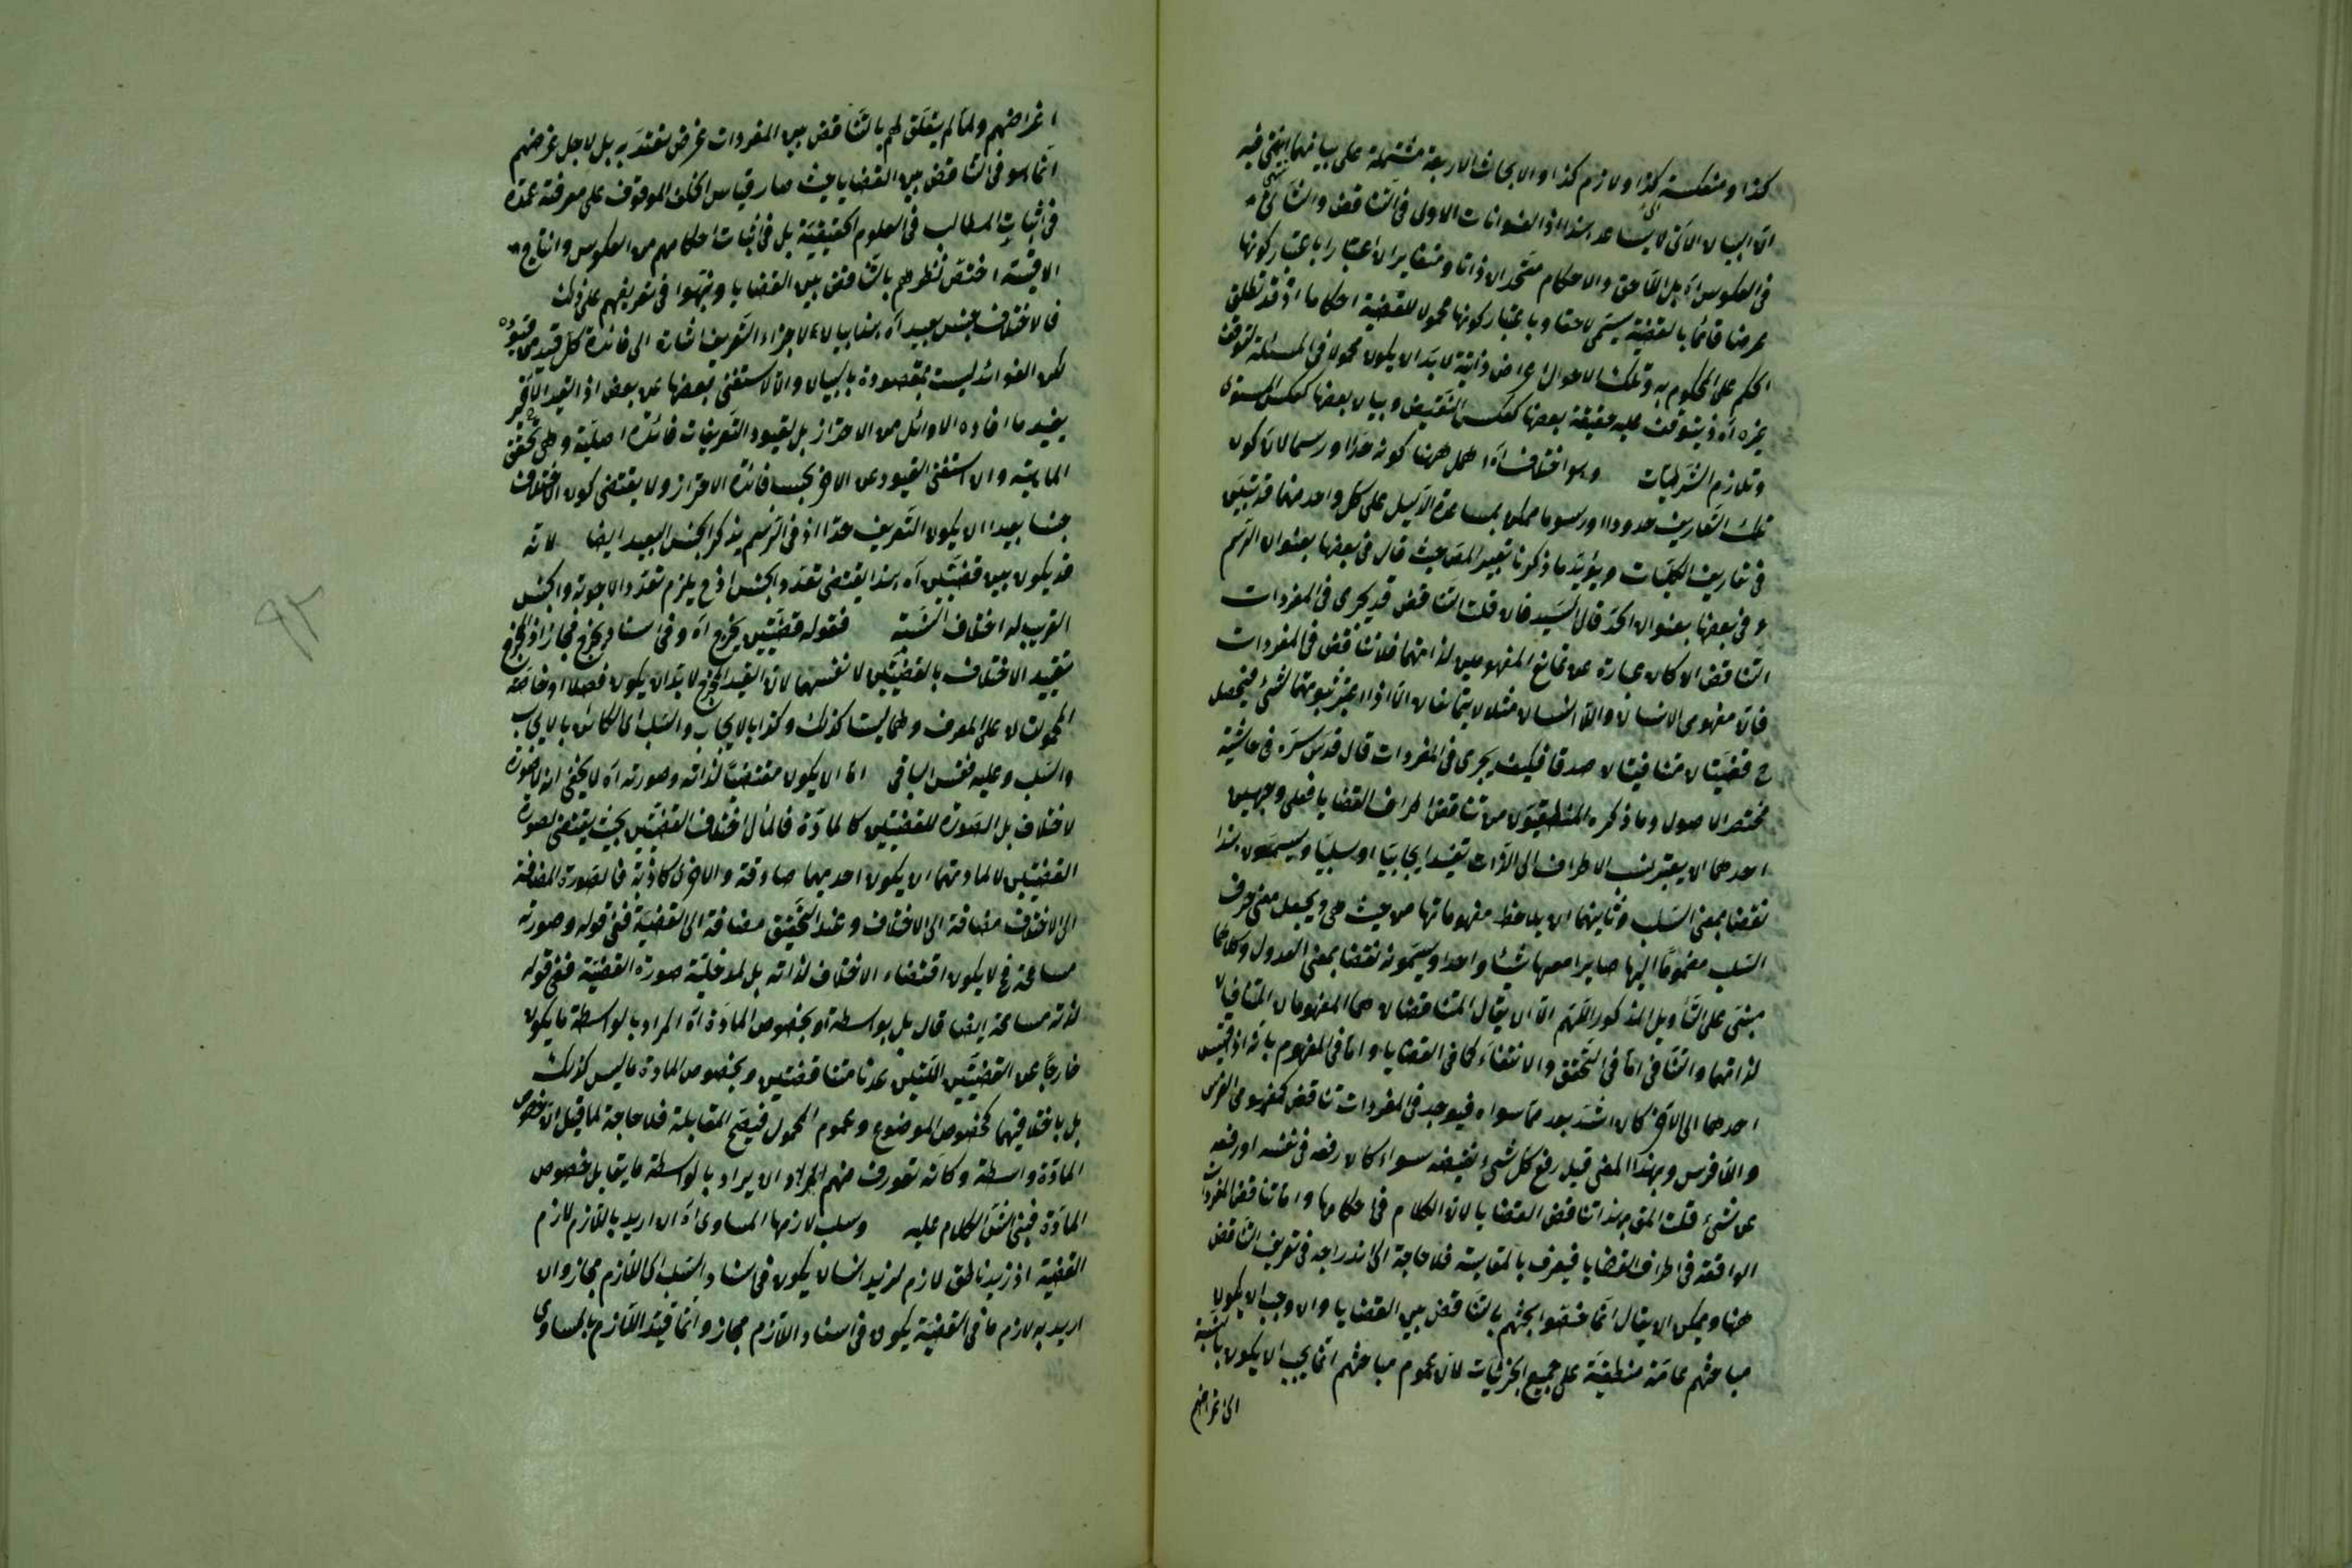 كذا ومنعكسة الى كذا ولازم كذا والابحاث الاربعة مشتملة على بيانهما انتهى فيه
ان البيان الآتي لا يساعد هذا اذ العنوانات الاول في التناقض والثاني
في العكوس آه بل اللاحق والاحكام متحدان ذاتا ومتغايران اعتبارا باعتبار كونها
عرضا قائما بالقضية يسمى لاحقا وباعتبار كونها محمولا للقضية احكاما اذ قد تطلق
الحكم على المحكوم به وتلك الاحوال اعراض ذاتية لا بد ان يكون محمولا في المسئلة لتوقف
غيره آه اذ يتوقف عليه حقيقة بعضها كعكس النقيض وبيان بعضها كعكس المستوى
وتلازم الشرطيات وهو اختلاف آه اهمل ههنا كونه حدا او رسما لان كون
تلك التعاريف حدودا او رسوما ممكن بمساعدة الدليل على كل واحد منها قد تبين
في تعاريف الكليات ويؤيد ما ذكرنا تعبير المص حيث قال في بعضها بعنوان الرسم
وفي بعضها بعنوان الحد قال السيد فان قلت التناقض قد يجرى في المفردات
التناقض ان كان عبارة عن تمانع المفهومين لذاتهما فلا تناقض في المفردات
فان مفهومى الانسان واللا انسان مثلا لا يتمانعان الا اذا اعتبر ثبوتهما لشئ فيحصل
ح قضيتان متنافيتان صدقا فكيف يجرى في المفردات قال قدس سره في حاشية
مختصر الاصول وما ذكره المنطقيون من تناقض اطراف القضايا فعلى وجهين
احدهما ان يعتبر نسب الاطراف الى الذات تقييدا ايجابيا او سلبيا ويسمون هذا
نقضا بمعنى السلب وثانيهما ان يلاحظ مفهوماتها من حيث هى ويجعل معنى حرف
السلب مضموما اليها صايرا معها شيئا واحدا ويسمونه نقضا بمعنى العدول وكلاهما
مبنى على التأويل المذكور اللهم الا ان يقال المتناقضان هما المفهومان المتنافيان
لذاتهما والتنافى اما في التحقق والانتفاء كما في القضايا واما في المفهوم بانه اذا قيس
احدهما الى الآخر كان اشد بعدا مما سواه فيوجد في المفردات تناقض كمفهومى الفرس
واللافرس وبهذا المعنى قيل رفع كل شئ نقيضه سواء كان رفعه في نفسه او رفعه
عن شئ قلت المهم هنا تناقض القضايا لان الكلام في احكامها واما تناقض المفردات
الواقعة في اطراف القضايا فيعرف بالمقايسة فلا حاجة الى اندراجه في تعريف التناقض
هنا ويمكن ان يقال انما خصصوا بحثهم بالتناقض بين القضايا وان وجب ان يكون
مباحثهم عامة منطبقة على جميع الجزئيات لان عموم مباحثهم انما يجب ان يكون بالنسبة
الى اغراضهم
اغراضهم ولما لم يتعلق لهم بالتناقض بين المفردات غرض يعتد به بل لاجل غرضهم
انما هو في التناقض بين القضايا حيث صار قياس الخلف الموقوف على معرفته عمدة
في اثبات المطالب في العلوم الحقيقية بل في اثبات احكامهم من العكوس وانتاج
الاقيسة اختص نظرهم بالتناقض بين القضايا ونبهوا في تعريفهم على ذلك
فالاختلاف جنس بعيد آه هذا بيان لاجزاء التعريف اشارة الى فائدة كل قيد من قيوده
لكن الفوائد ليست بمقصودة بالبيان والا لاستغنى بعضها عن بعض اذ القيد الاخير
يفيد ما افاده الاوائل من الاحتراز بل لقيود التعريفات فائدة اصلية وهى تحقق
الماهية وان استغنى القيود عن الآخر بحسب فائدة الاحتراز ولا يقتضى كون الاختلاف
جنسا بعيدا ان يكون التعريف حدا اذ في الرسم يذكر الجنس البعيد ايضا لانه
قد يكون بين قضيتين آه هذا يقتضى تعدد الجنس اذ ح يلزم تعدد الاجوبة والجنس
القريب له اختلاف النسبة فقوله قضيتين يخرج آه وفي اسناد يخرج مجاز اذ المخرج
تقييد الاختلاف بالقضيتين لا نفسهما لان القيد المخرج لا بد ان يكون فصلا او خاصة
محمولان على المعرف وهما ليستا كذلك وكذا بالايجاب والسلب اى الكائن بالايجاب
والسلب وعليه فقس الباقى اما ان يكون مقتضيا لذاته وصورته آه لا يخفى انه لا صورة
لاختلاف بل الصورة للقضيتين كالمادة فالمآل اختلاف القضيتين بحيث يقتضى لصورة
القضيتين لا لمادتهما ان يكون احديهما صادقة والاخرى كاذبة فالصورة المضافة
الى الاختلاف مضافة الى الاختلاف وعند التحقيق مضافة الى القضية ففى قوله وصورته
مسامحة ثم لا يكون اقتضاء الاختلاف لذاته بل لمدخلية صورة القضية ففى قوله
لذاته مسامحة ايضا قال بل بواسطة او بخصوص المادة آه المراد بالواسطة ما يكون
خارجا عن القضيتين اللتين عدتا متناقضتين وبخصوص المادة ما ليس كذلك
بل باختلافهما كخصوص الموضوع وعموم المحمول فيصح المقابلة فلا حاجة لما قيل ان خصوص
المادة واسطة وكأنه تعورف منهم ان يراد بالواسطة ما يقابل خصوص
المادة فبنى الكلام عليه وسلب لازمها المساوى آه ان اريد باللازم لازم
القضية اذ زيد ناطق لازم لزيد انسان يكون في اسناد السلب الى اللازم مجاز وان
اريد به لازم ما في القضية يكون في اسناد اللازم مجاز وانما قيد اللازم بالمساوى